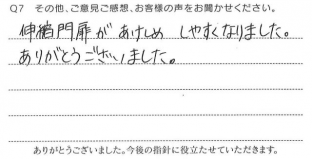 Q7 その他、ご意見ご感想、お客様の声をお聞かせください。
伸縮門扉があけしめ しやすくなりました。
ありがとうございました。
ありがとうございました。今後の指針に役立たせていただきます。